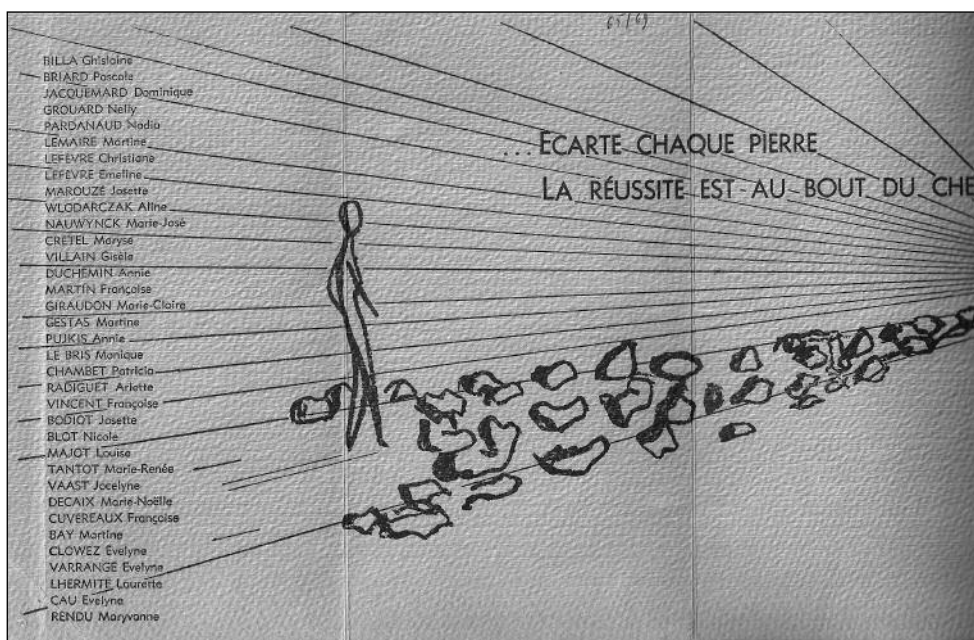 65/69
BILLA Ghislaine
BRIARD Pascale
JACQUEMARD Dominique
GROUARD Nelly
PARDANAUD Nadia
LEMAIRE Martine
LEFEVRE Christiane
LEFEVRE Emeline
MAROUZÉ Josette
WLODARCZAK Aline
NAUWYNCK Marie-José
CRETEL Maryse
VILLAIN Gisèle
DUCHEMIN Annie
MARTIN Françoise
GIRAUDON Marie-Claire
GESTAS Martine
PUJKIS Annie
LE BRIS Monique
CHAMBET Patricia
RADIGUET Arlette
VINCENT Françoise
BODIOT Josette
BLOT Nicole
MAJOT Louise
TANTOT Marie-Renée
VAAST Jocelyne
DECAIX Marie-Noëlle
CUVEREAUX Françoise
BAY Martine
CLOWEZ Evelyne
VARRANGE Evelyne
LHERMITE Laurette
CAU Evelyne
RENDU Maryvonne
... ECARTE CHAQUE PIERRE
LA RÉUSSITE EST AU BOUT DU CHE